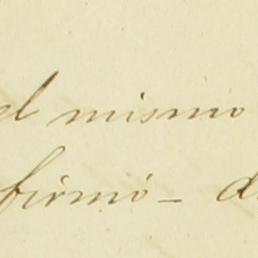 el mismo
firmó -